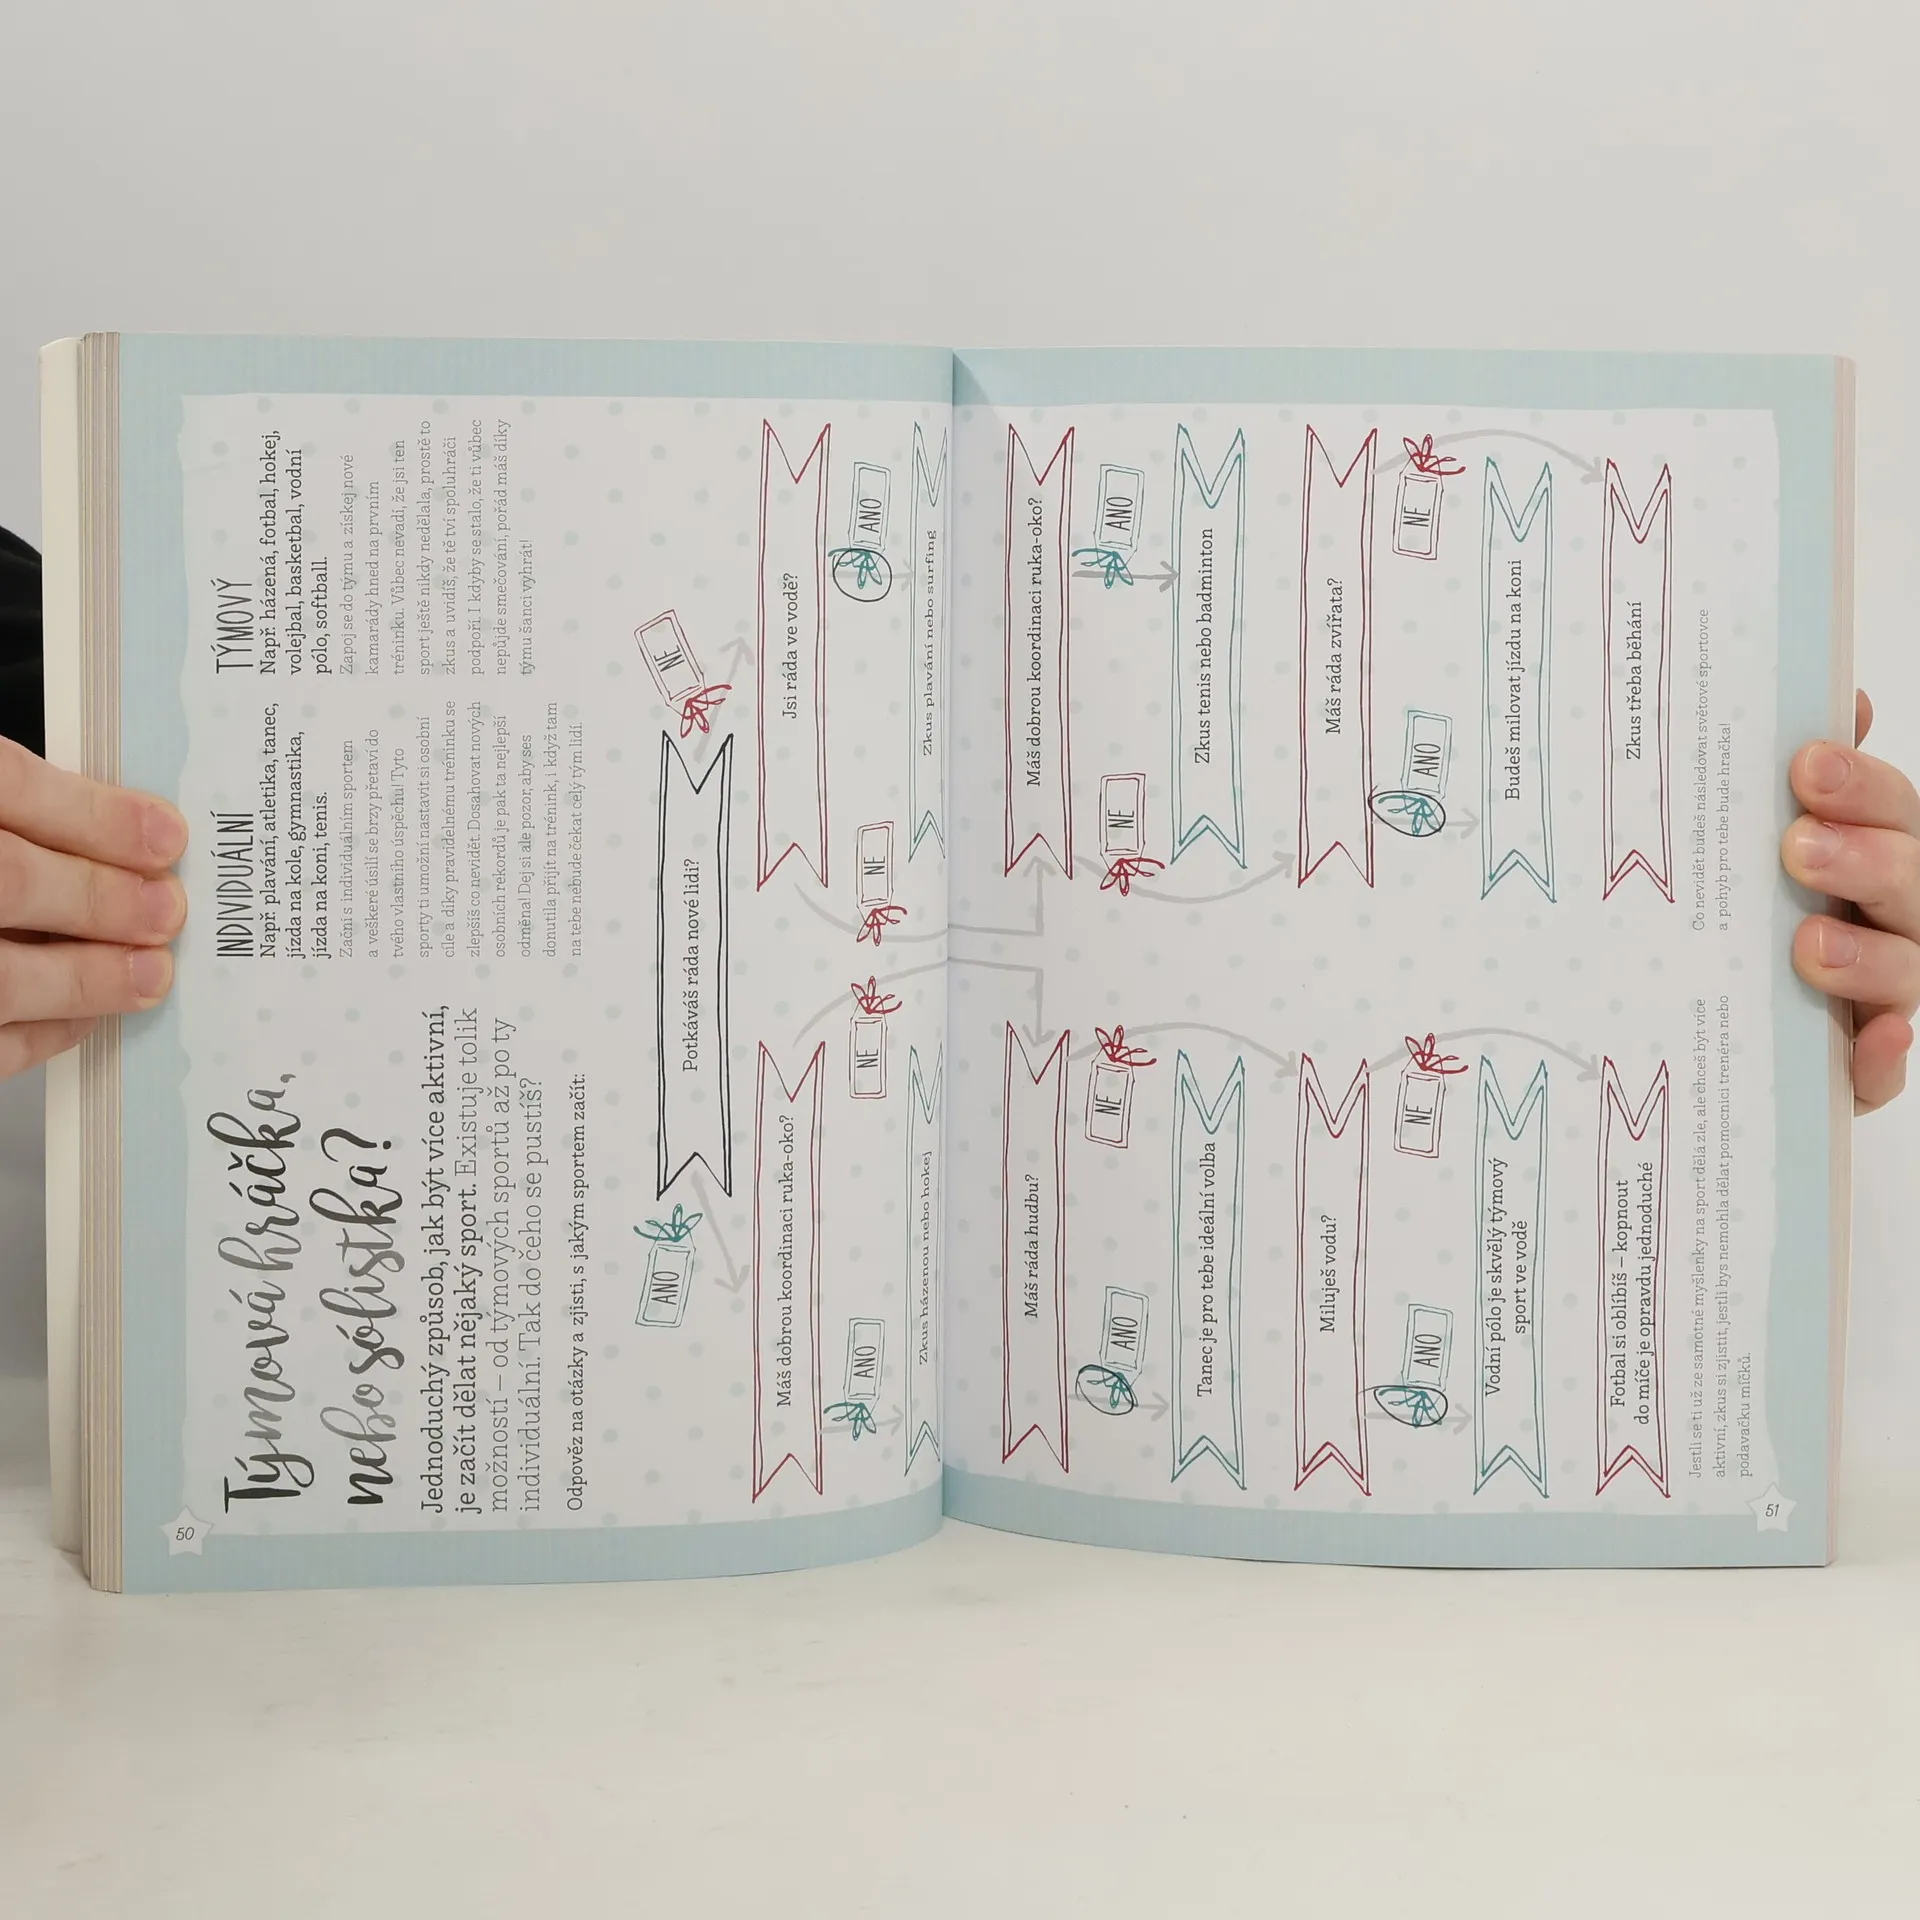 Týmová hráčka,
nebo sólistka?
Jednoduchý způsob, jak být více aktivní,
je začít dělat nějaký sport. Existuje tolik
možností – od týmových sportů až po ty
individuální. Tak do čeho se pustíš?
Odpověz na otázky a zjisti, s jakým sportem začít:
INDIVIDUÁLNÍ
Např. plavání, atletika, tanec,
jízda na kole, gymnastika,
jízda na koni, tenis.
Začni s individuálním sportem
a veškeré úsilí se brzy přetaví do
tvého vlastního úspěchu! Tyto
sporty ti umožní nastavit si osobní
cíle a díky pravidelnému tréninku se
zlepšíš co nevidět. Dosahovat nových
osobních rekordů je pak ta nejlepší
odměna! Dej si ale pozor, aby ses
donutila přijít na trénink, i když tam
na tebe nebude čekat celý tým lidí.
TÝMOVÝ
Např. házená, fotbal, hokej,
volejbal, basketbal, vodní
pólo, softball.
Zapoj se do týmu a získej nové
kamarády hned na prvním
tréninku. Vůbec nevadí, že jsi ten
sport ještě nikdy nedělala, prostě to
zkus a uvidíš, že tě tví spoluhráči
podpoří. I kdyby se stalo, že ti vůbec
nepůjde smečování, pořád máš díky
týmu šanci vyhrát!
Potkáváš ráda nové lidi?
ANO
NE
Máš dobrou koordinaci ruka-oko?
Jsi ráda ve vodě?
ANO
NE
NE
ANO
Zkus házenou nebo hokej
Zkus plavání nebo surfing
50
Máš ráda hudbu?
Máš dobrou koordinaci ruka-oko?
ANO
NE
NE
ANO
Tanec je pro tebe ideální volba
Zkus tenis nebo badminton
Miluješ vodu?
Máš ráda zvířata?
ANO
NE
ANO
NE
Vodní pólo je skvělý týmový
sport ve vodě
Budeš milovat jízdu na koni
Fotbal si oblíbíš – kopnout
do míče je opravdu jednoduché
Zkus třeba běhání
Jestli se ti už ze samotné myšlenky na sport dělá zle, ale chceš být více
aktivní, zkus si zjistit, jestli bys nemohla dělat pomocnici trenéra nebo
podavačku míčků.
Co nevidět budeš následovat světové sportovce
a pohyb pro tebe bude hračka!
51